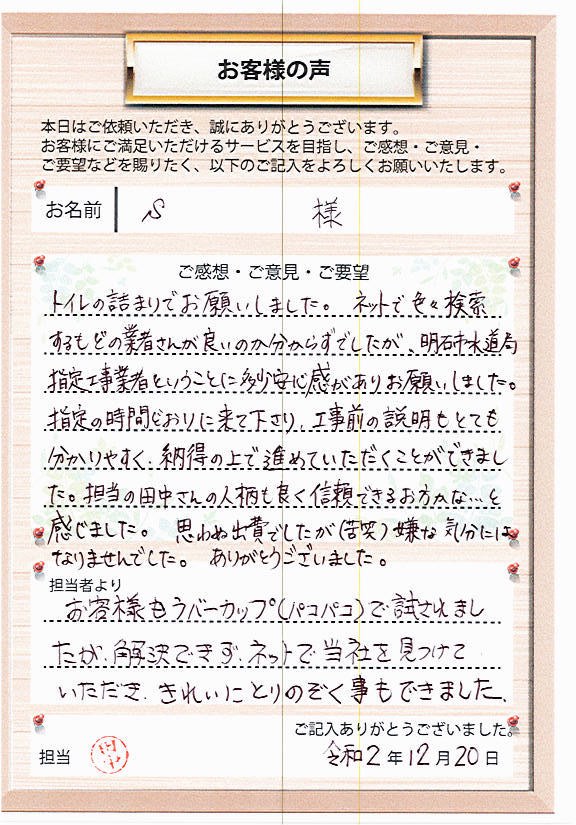 お客様の声
本日はご依頼いただき、誠にありがとうございます。
お客様にご満足いただけるサービスを目指し、ご感想・ご意見・
ご要望などを賜りたく、以下のご記入をよろしくお願いいたします。
お名前 S 様
ご感想・ご意見・ご要望
トイレの詰まりでお願いしました。 ネットで色々検索
するもどの業者さんが良いのか分からずでしたが、明石市水道局
指定工事業者ということに多少安心感がありお願いしました。
指定の時間どおりに来て下さり、工事前の説明もとても
分かりやすく、納得の上で進めていただくことができまし
た。担当の田中さんの人柄も良く信頼できるお方かな…と
感じました。 思わぬ出費でしたが(苦笑)嫌な気分には
なりませんでした。 ありがとうございました。
担当者より
お客様もラバーカップ(パコパコ)で試されまし
たが、解決できず、ネットで当社を見つけて
いただき、きれいにとりのぞく事もできました、
ご記入ありがとうございました。
担当 田中 令和2年12月20日